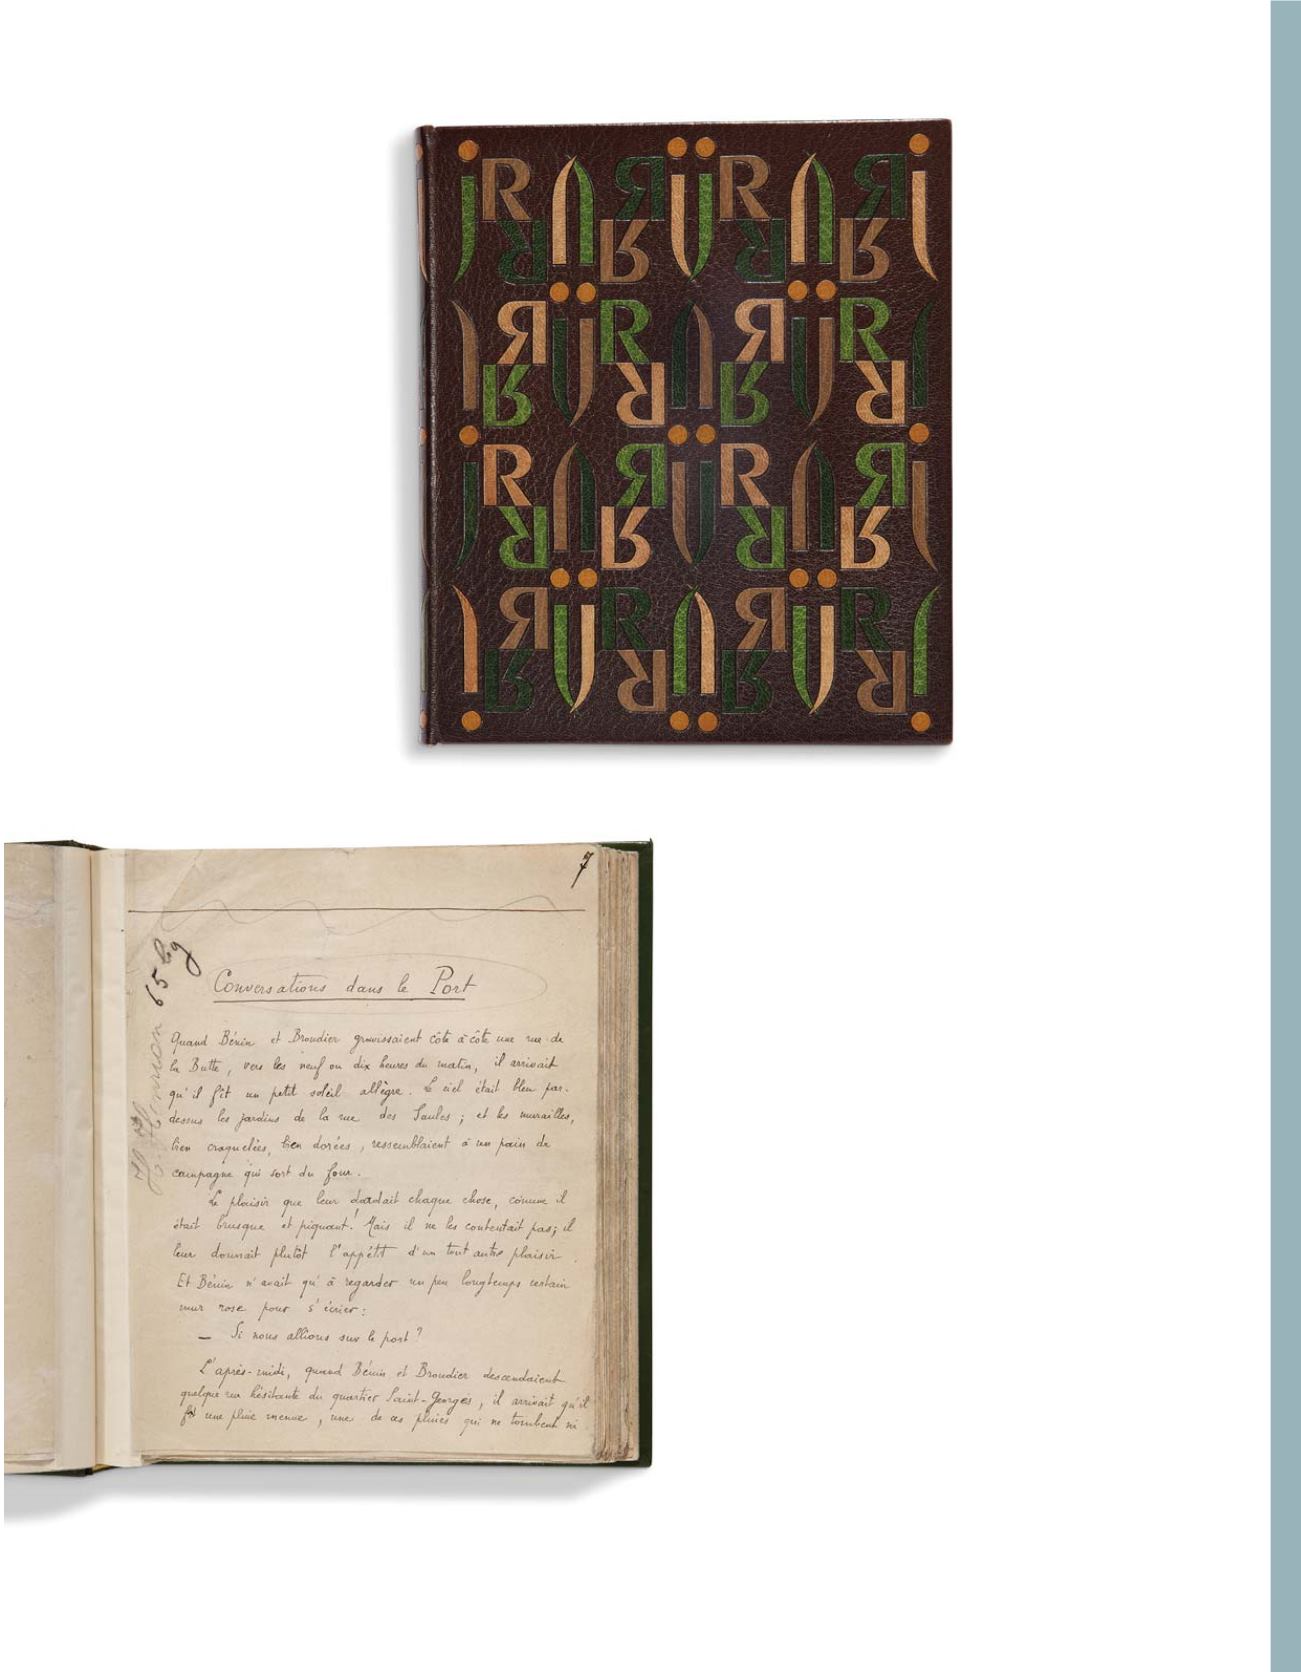 7
65 bg
Conversations dans le Port
Quand Bénin et Broudier gravissaient côte à côte une rue de
la Butte, vers les neuf ou dix heures du matin, il arrivait
qu'il fît un petit soleil allègre. Le ciel était bleu par-
dessus les jardins de la rue des Saules ; et les murailles,
bien craquelées, bien dorées, ressemblaient à un pain de
campagne qui sort du four.
Le plaisir que leur dardait chaque chose, comme il
était brusque et piquant! Mais il ne les contentait pas; il
leur donnait plutôt l'appétit d'un tout autre plaisir.
Et Bénin n'avait qu'à regarder un peu longtemps certain
mur rose pour s'écrier:
— Si nous allions sur le port?
L'après-midi, quand Bénin et Broudier descendaient
quelque rue hésitante du quartier Saint-Georges, il arrivait qu'il
fît une pluie menue, une de ces pluies qui ne tombent ni